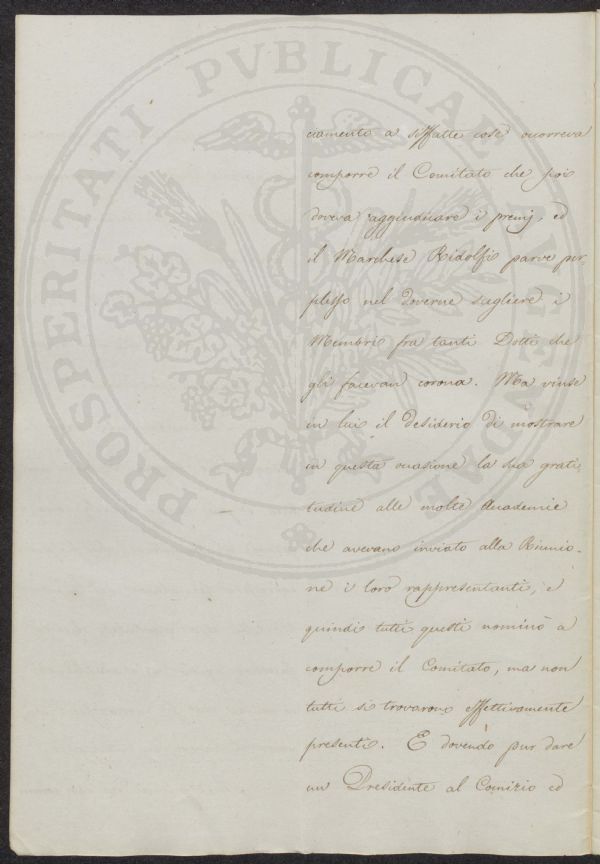 PROSPERITATI PVBLICAE AVGENDAE
ciamento a siffatte cose occorreva
comporre il Comitato che poi
doveva aggiudicare i premj, ed
il Marchese Ridolfi parve per,
plesso nel doverne scegliere i
Membri fra tanti Dotti che
gli facevan corona. Ma vinse
in lui il desiderio di mostrare
in questa occasione la sua grati,
tudine alle molte Accademie
che avevano inviato alla Riunio-
ne i loro rappresentanti, e
quindi tutti questi nominò a
comporre il Comitato, ma non
tutti si trovarono effettivamente
presenti. E dovendo pur dare
un Presidente al Comizio ed